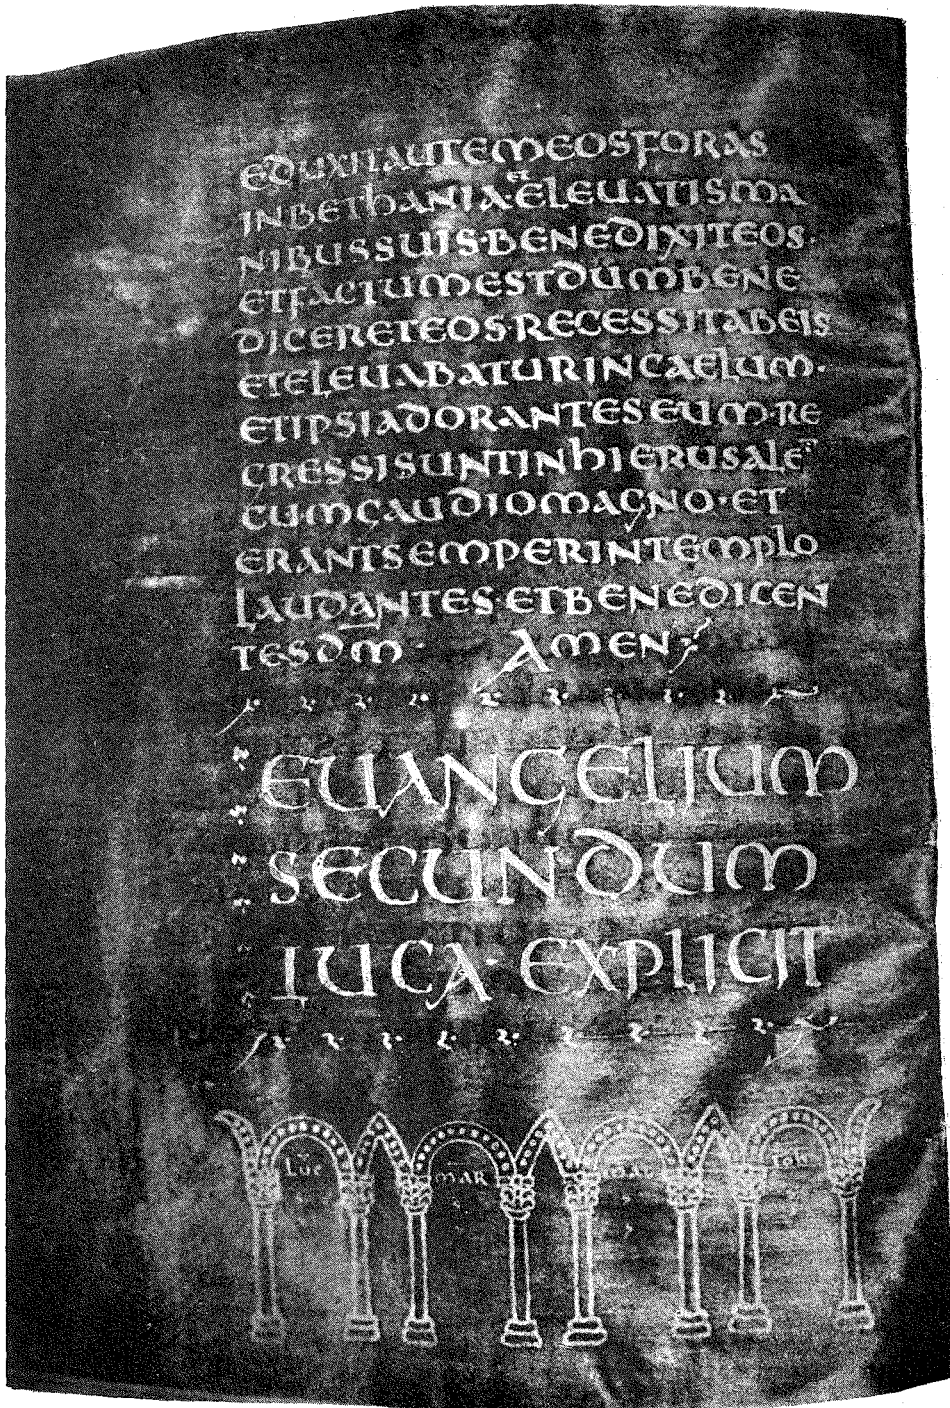 EDUXITAUTEMEOSFORAS
INBEThANIA·ET ELEUATISMA
NIBUSSUIS·BENEDIXITEOS·
ETFACTUMESTDUMBENE
DICERETEOS·RECESSITABEIS
ETELEUABATURINCAELUM·
ETIPSIADORANTESEUM·RE
GRESSISUNTINhIERUSALE̅
CUMGAUDIOMAGNO·ET
ERANTSEMPERINTEMPLO
LAUDANTES·ETBENEDICEN
TESDM· AMEN
EUANGELIUM
SECUNDUM
LUCA·EXPLICIT
LUC MAR IOH